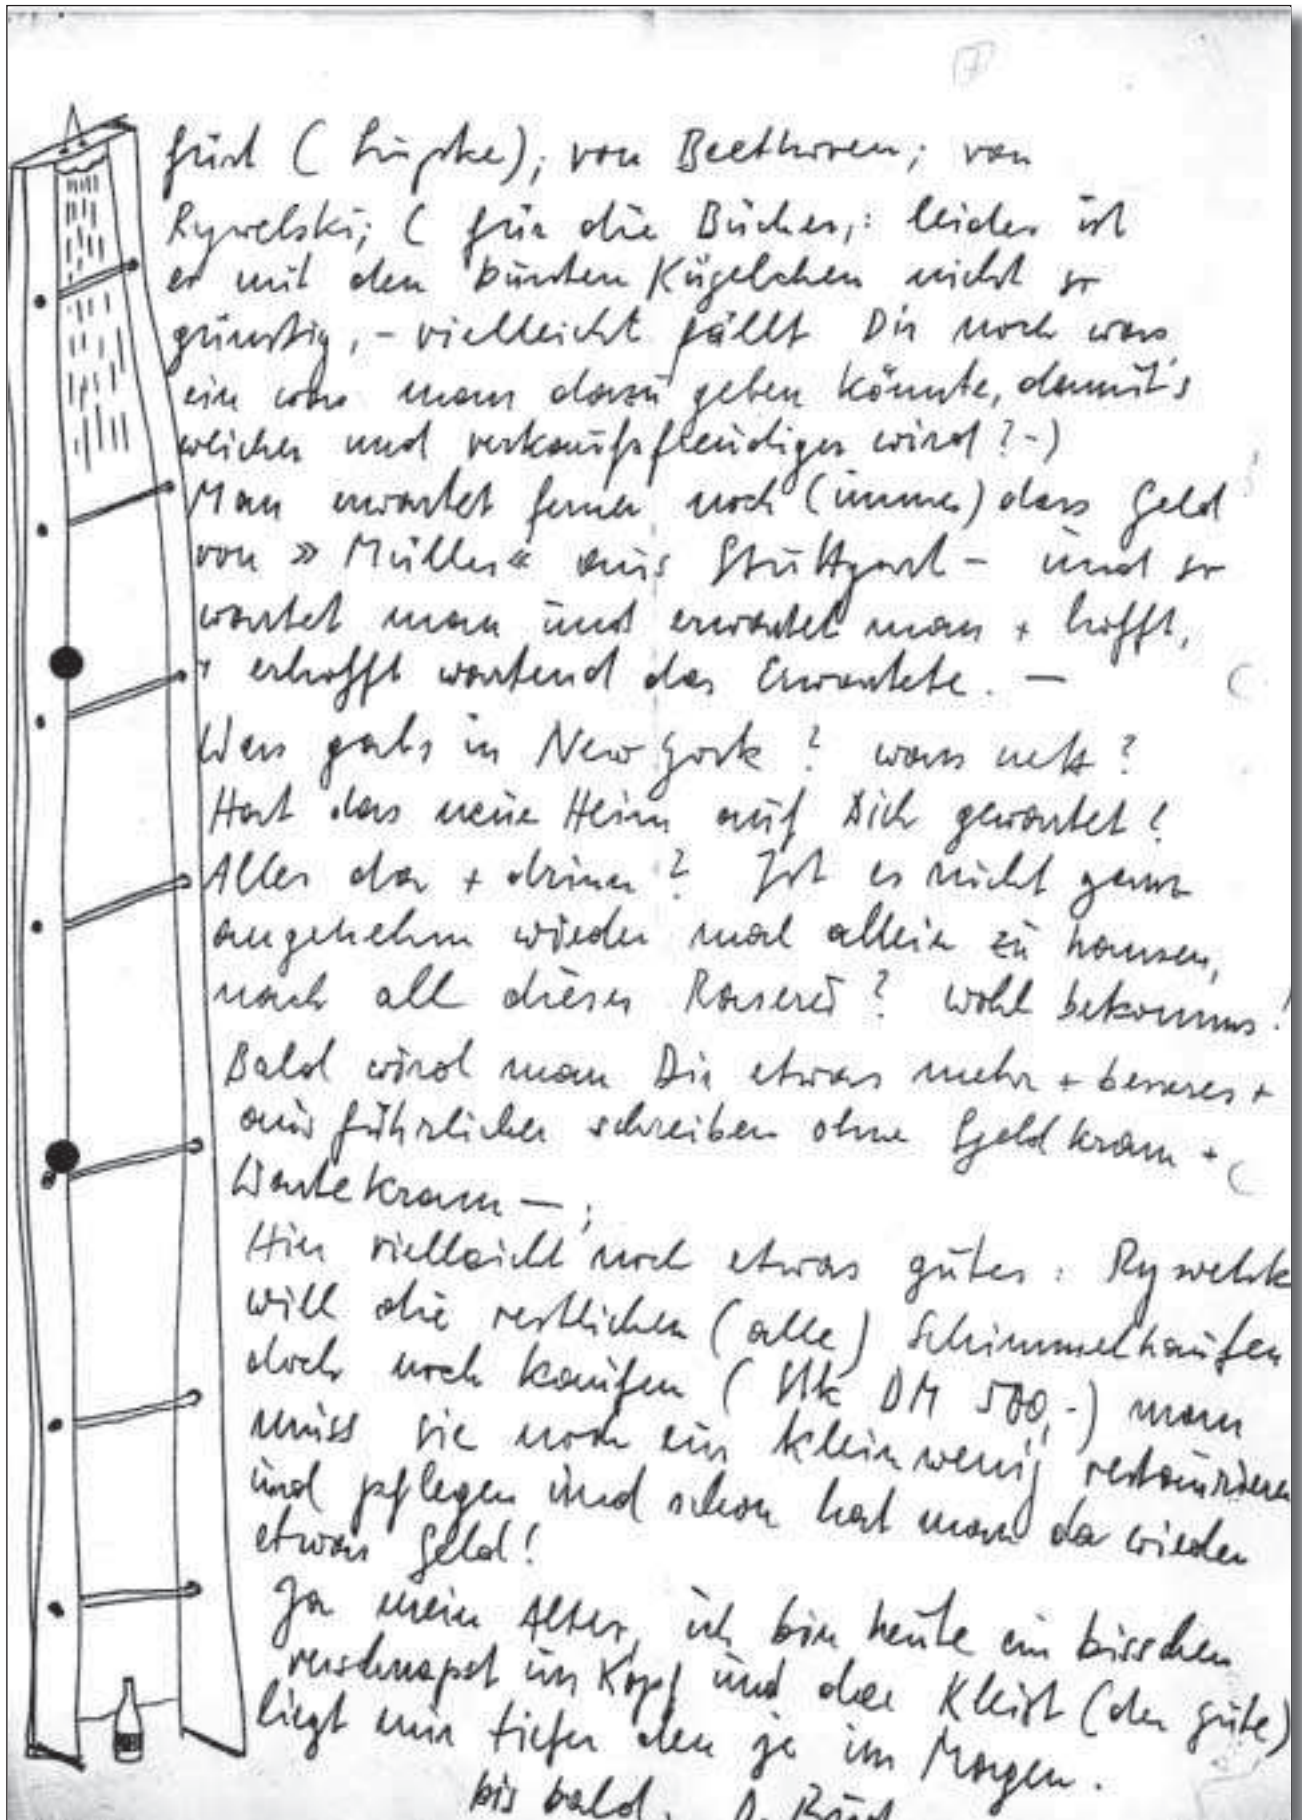 fürst (Lüpke); von Beethoven; von
Rywelski; (für die Bücher,: leider ist
er mit den bunten Kügelchen nicht so
günstig, - vielleicht fällt Dir noch was
ein was man dazu geben könnte, damit's
weicher und verkaufsfreudiger wird?-)
Man erwartet ferner noch (immer) dass Geld
von »Müller« aus Stuttgart - und so
wartet man und erwartet man + hofft,
+ erhofft wartend das Erwartete. —
Was gabs in New York? was nett?
Hat das neue Heim auf Dich gewartet?
Alles da + drinnen? Ist es nicht ganz
angenehm wieder mal allein zu hausen,
nach all dieser Raserei? wohl bekomms!
Bald wird man Dir etwas mehr + besseres +
ausführlicher schreiben ohne Geldkram +
Wartekram —;
Hier vielleicht noch etwas gutes: Rywelsk
will die restlichen (alle) Schimmelhaufen
doch noch kaufen (Stk DM 500,-) man
muss sie noch ein klein wenig restaurieren
und pflegen und schon hat man da wieder
etwas Geld!
Ja mein Alter, ich bin heute ein bisschen
verschnapst im Kopf und der Kleist (der gute)
liegt mir tiefer den je im Magen.
bis bald.